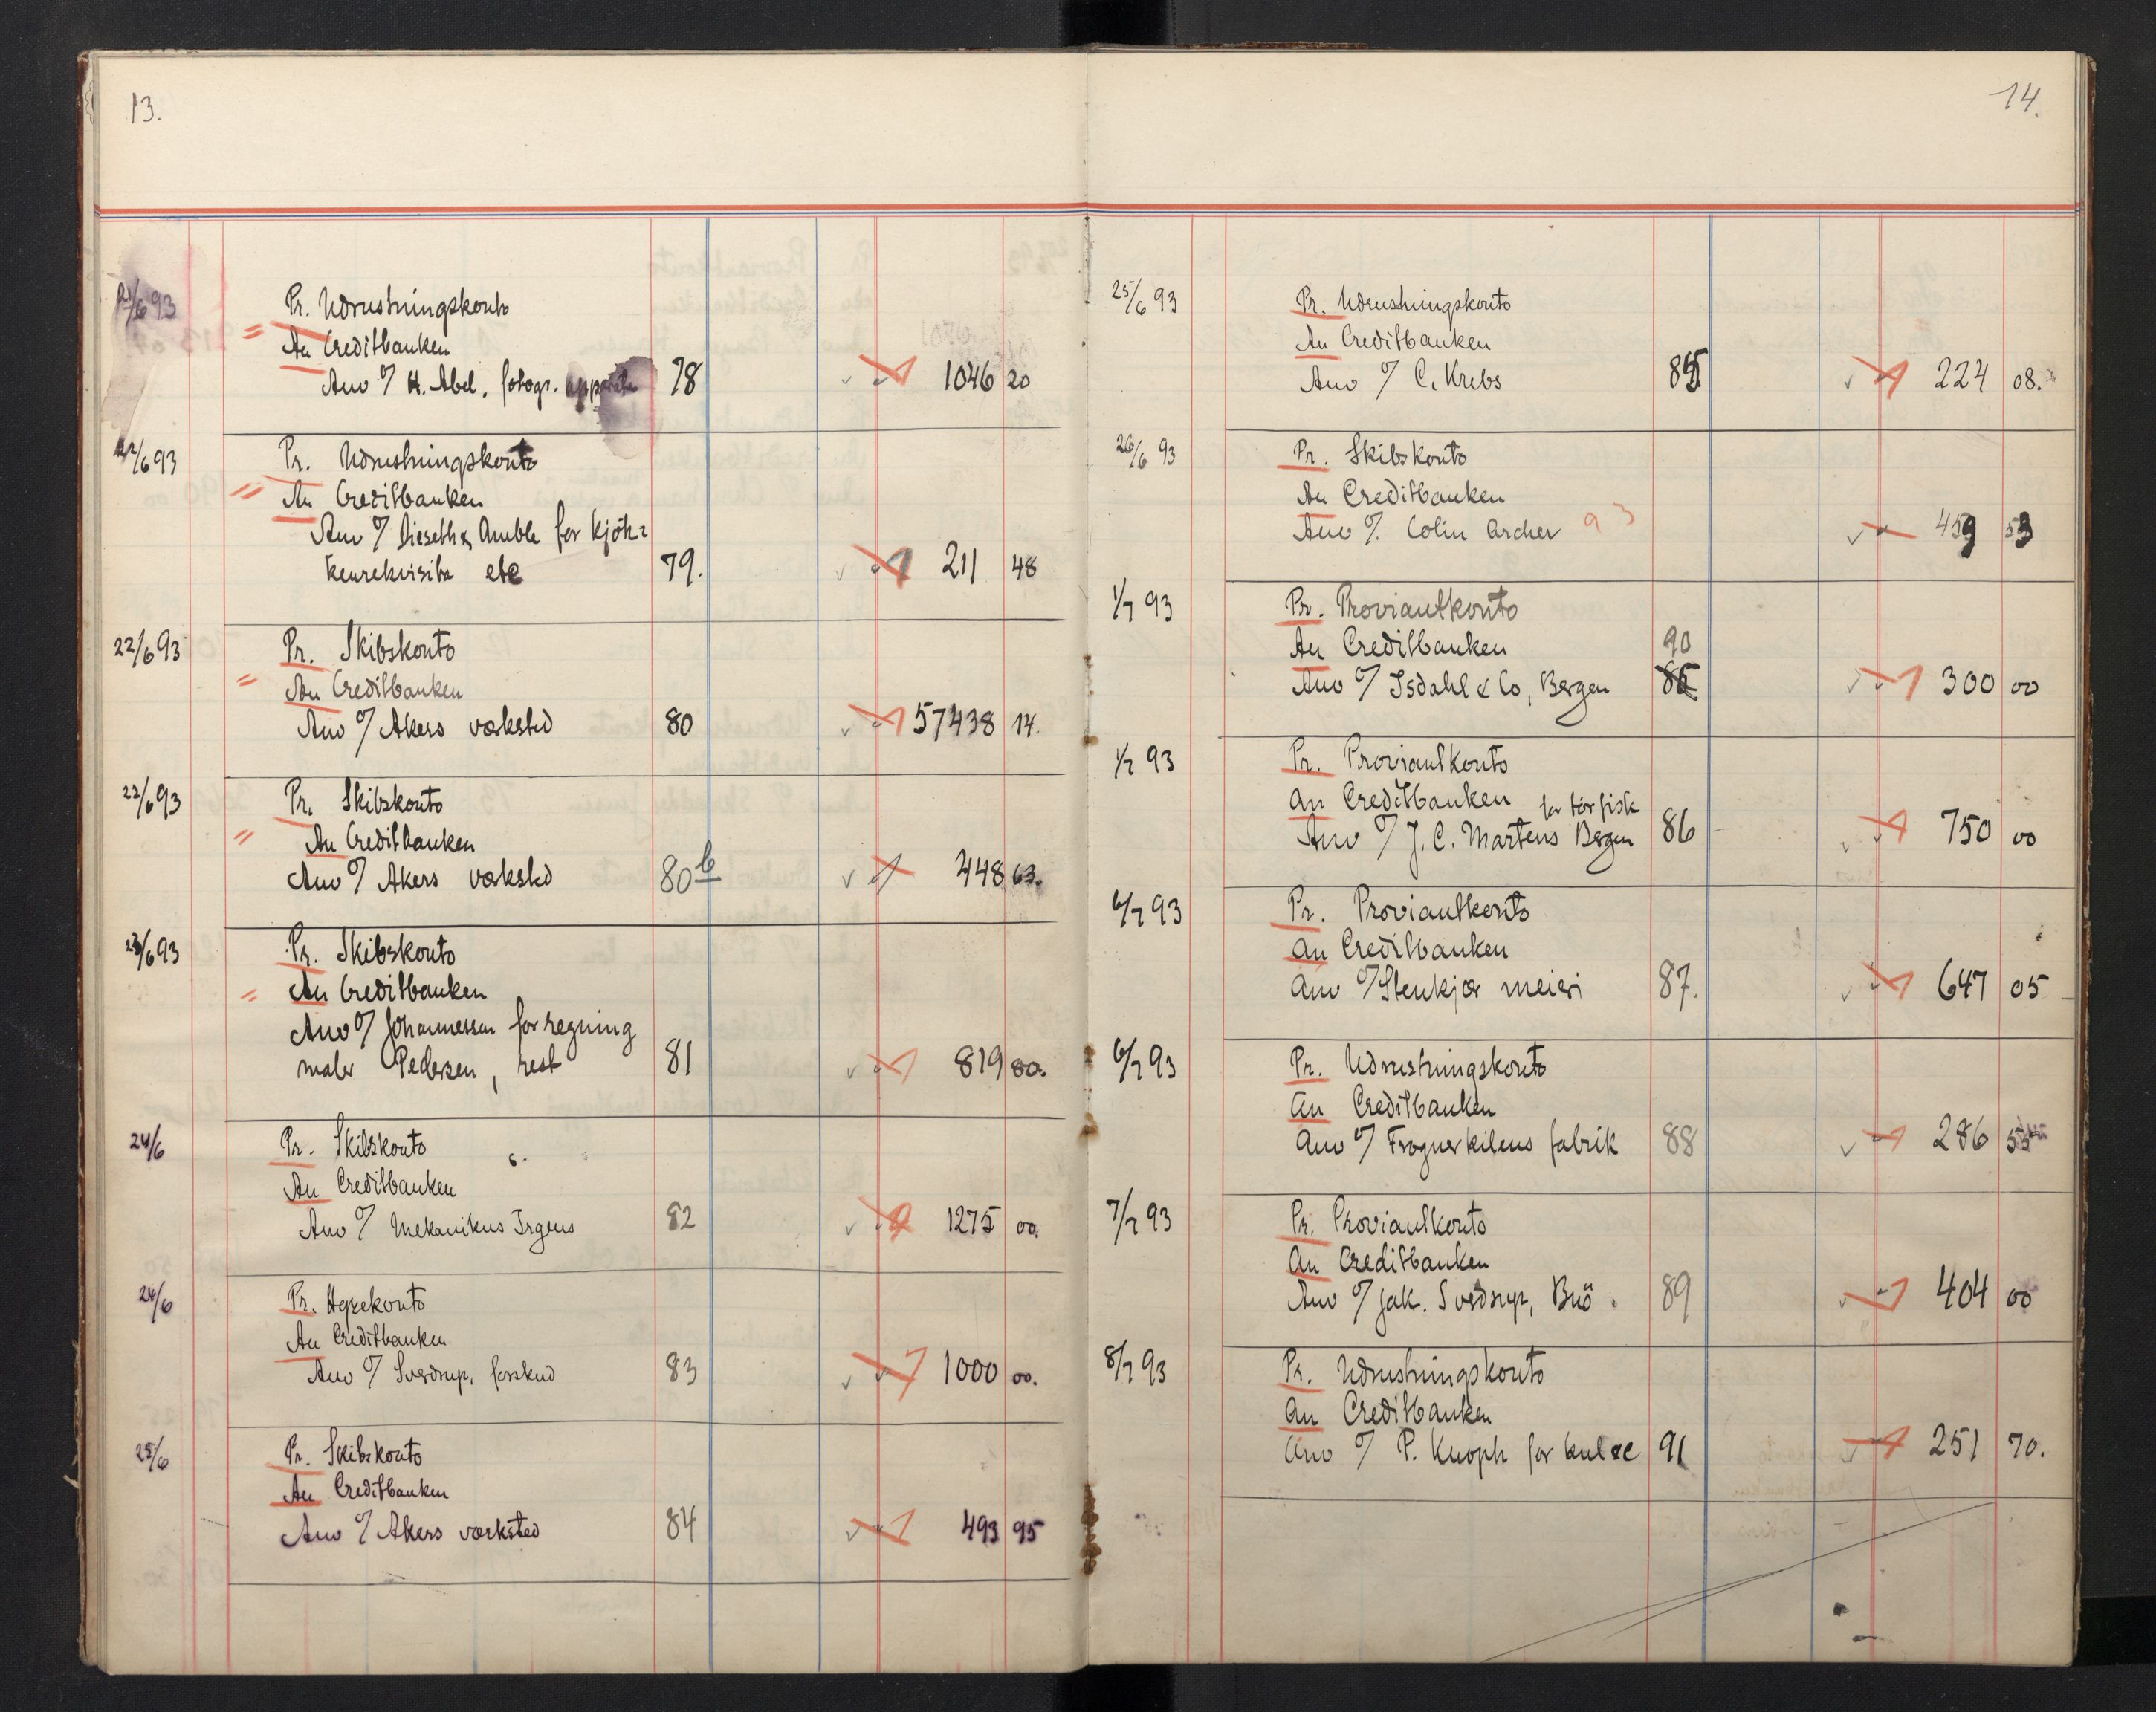 13.
21/6 93 Pr. Udrustningskonto
An Creditbanken
Anv % H. Abel. fotogr. apparater 78 1046 20
22/6 93 Pr. Udrustningskonto
An Creditbanken
Anv % Dieseth & Amble for kjök=
kenrekvisita etc 79. 211 48
22/6 93 Pr. Skibskonto
An Creditbanken
Anv % Akers værksted 80 57438 14.
22/6 93 Pr. Skibskonto
An Creditbanken
Anv % Akers værksted 80 b 448 63.
23/6 93 Pr. Skibskonto
An Creditbanken
Anv % Johannessen for regning
maler Pedersen, rest 81 819 80.
24/6 Pr. Skibskonto
An Creditbanken
Anv % Mekanikus Irgens 82 1275 00.
24/6 Pr. Hyrekonto
An Creditbanken
Anv % Sverdrup, forskud 83 1000 00.
25/6 Pr. Skibskonto
An Creditbanken
Anv % Akers værksted 84 493 95
14.
25/6 93 Pr. Udrustningskonto
An Creditbanken
Anv % C. Krebs 85 224 08.
26/6 93 Pr. Skibskonto
An Creditbanken
Anv %. Colin Archer 93 459 53
1/7 93 Pr. Proviantkonto
An Creditbanken 90
Anv % Isdahl & Co, Bergen 86 300 00
1/7 93 Pr. Proviantkonto
An Creditbanken for törfisk
Anv % J. C. Martens Bergen 86 750 00
6/7 93 Pr. Proviantkonto
An Creditbanken
Anv % Stenkjær meieri 87. 647 05
6/7 93 Pr. Udrustningskonto
An Creditbanken
Anv % Frognerkilens fabrik 88 286 55
7/7 93 Pr. Proviantkonto
An Creditbanken
Anv % Jak. Sverdrup, Buö. 89 404 00
8/7 93 Pr. Udrustningskonto
An Creditbanken
Anv % P. Knoph for kul &c 91 251 70.